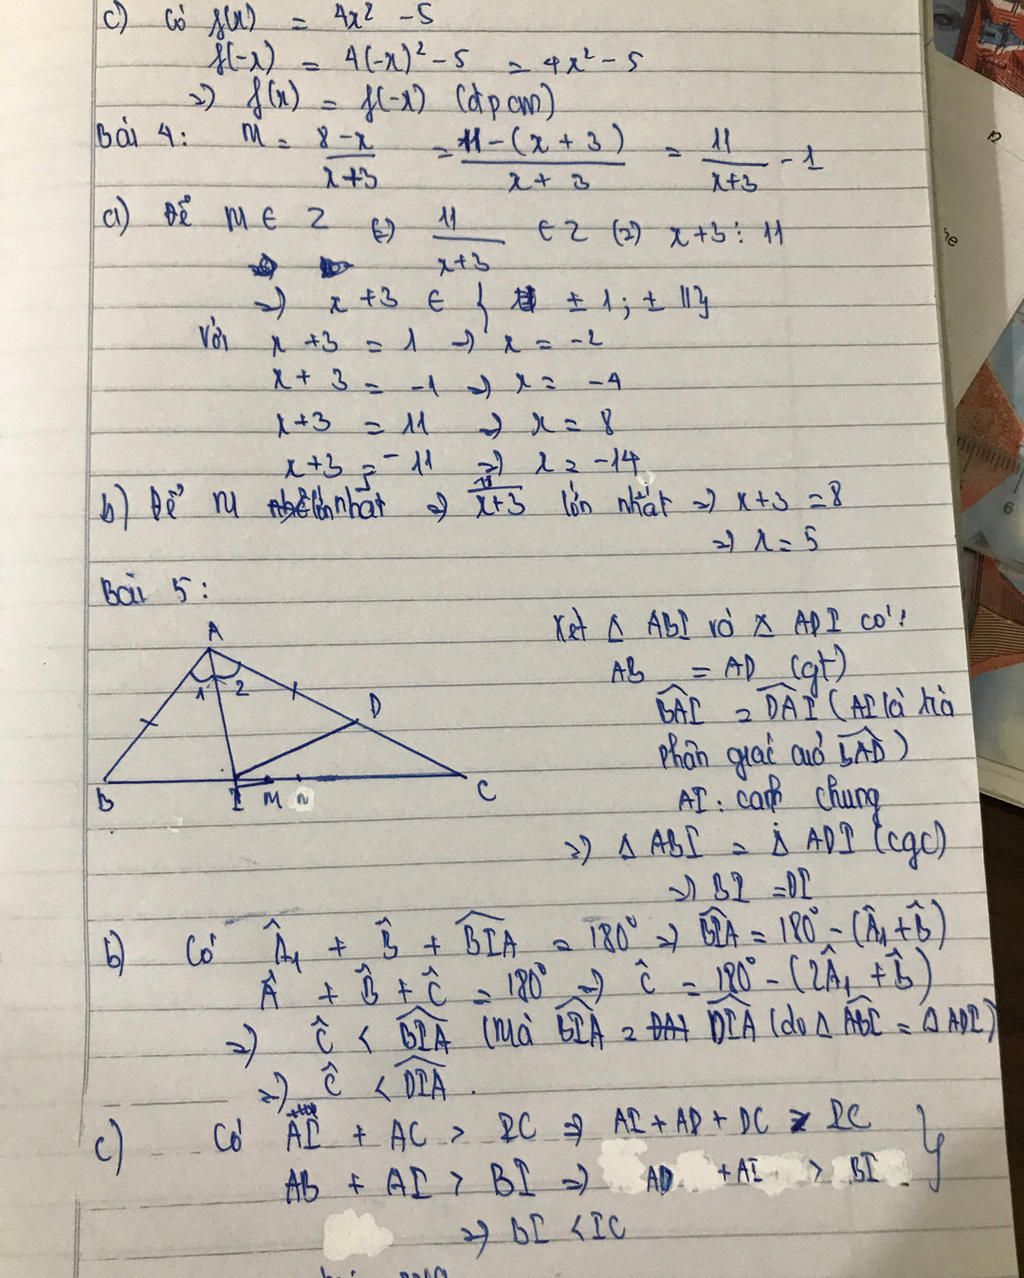 c) Có f(x) = 4x² - 5
f(-x) = 4(-x)² - 5 = 4x² - 5
=> f(x) = f(-x) (đpcm)
Bài 4: M = (8-x)/(x+3) = (11-(x+3))/(x+3) = 11/(x+3) - 1
a) Để M ∈ Z (=) 11/(x+3) ∈ Z (=) x+3 ⋮ 11
=) x+3 ∈ { ±1; ±11}
Với x+3 = 1 => x = -2
x+3 = -1 => x = -4
x+3 = 11 => x = 8
x+3 = -11 => x = -14
b) Để M lớn nhất => 11/(x+3) lớn nhất => x+3 = 8
=> x = 5
Bài 5:
A
1 2
D
B I M N C
Xét Δ ABI và Δ ADI có:
AB = AD (gt)
BAI = DAI (AI là tia
phân giác của BAD)
AI: cạnh chung
=> Δ ABI = Δ ADI (cgc)
=> BI = DI
b) Có Â₁ + B̂ + BIA = 180° => BIA = 180° - (Â₁ + B̂)
Â + B̂ + Ĉ = 180° => Ĉ = 180° - (2Â₁ + B̂)
=> Ĉ < BIA (Mà BIA = DIA (do Δ ABI = Δ ADI)
=> Ĉ < DIA.
c) Có AI + AC > IC => AI + AD + DC > IC
AB + AI > BI => AD + AI > BI }
=> BI < IC